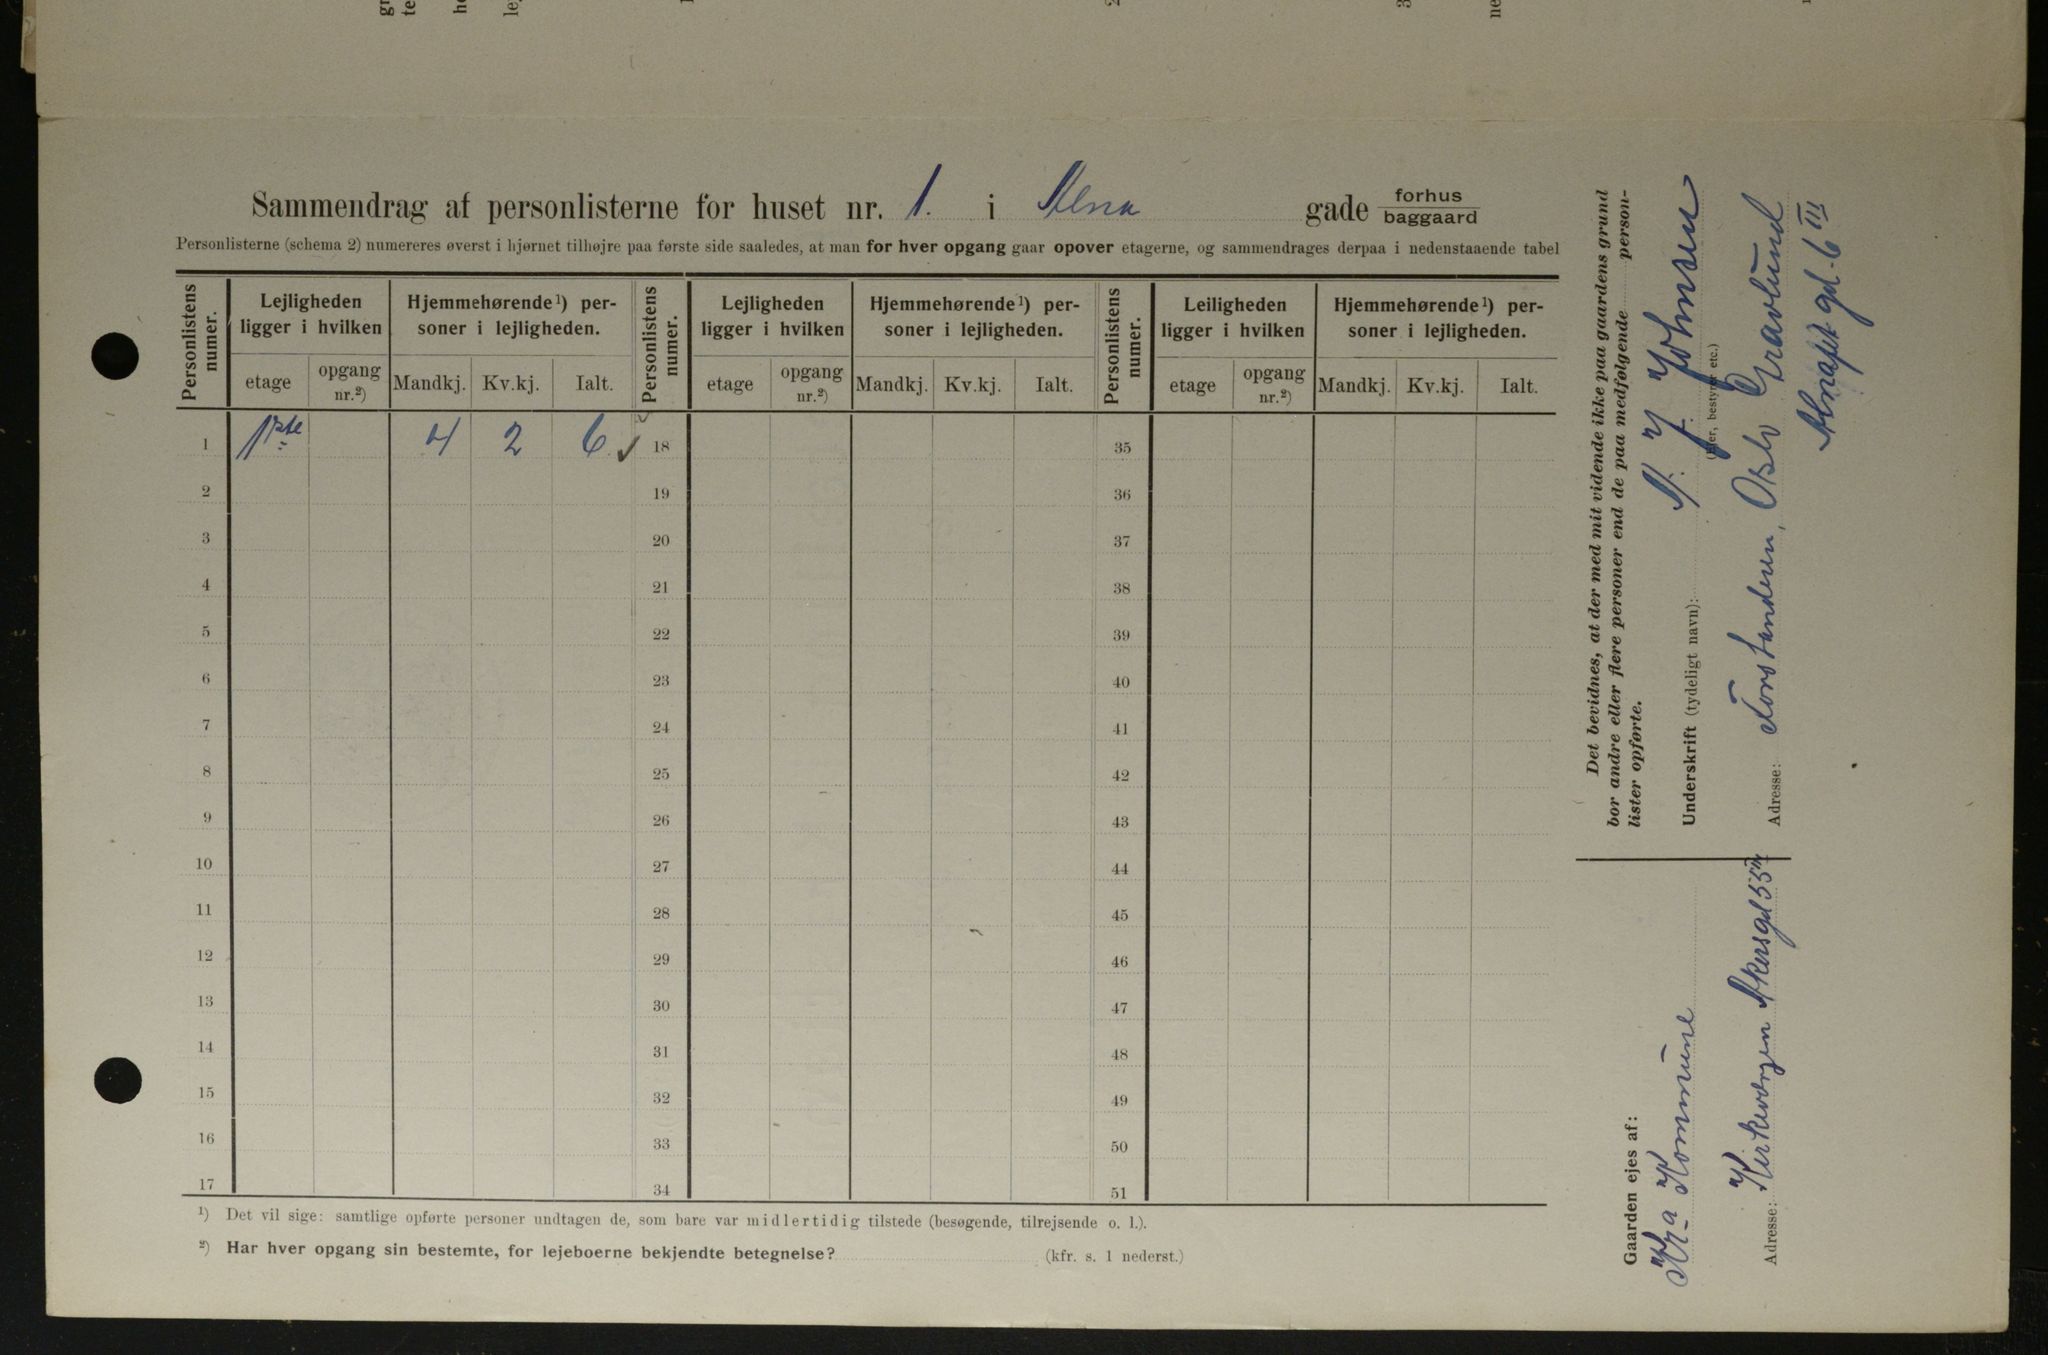 Sammendrag af personlisterne for huset nr. 1. i Alna gade forhus baggaard
Personlisterne (schema 2) numereres øverst i hjørnet tilhøjre paa første side saaledes, at man for hver opgang gaar opover etagerne, og sammendrages derpaa i nedenstaaende tabel
Personlistens numer.
Lejligheden ligger i hvilken
Hjemmehørende¹) personer i lejligheden.
Personlistens numer.
Lejligheden ligger i hvilken
Hjemmehørende¹) personer i lejligheden.
Personlistens numer.
Leiligheden ligger i hvilken
Hjemmehørende¹) personer i lejligheden.
etage opgang nr.²) Mandkj. Kv.kj. Ialt. etage opgang nr.²) Mandkj. Kv.kj. Ialt. etage opgang nr.²) Mandkj. Kv.kj. Ialt.
1 1ste 4 2 6 18 35
2 19 36
3 20 37
4 21 38
5 22 39
6 23 40
7 24 41
8 25 42
9 26 43
10 27 44
11 28 45
12 29 46
13 30 47
14 31 48
15 32 49
16 33 50
17 34 51
¹) Det vil sige: samtlige opførte personer undtagen de, som bare var midlertidig tilstede (besøgende, tilrejsende o. l.).
²) Har hver opgang sin bestemte, for lejeboerne bekjendte betegnelse? (kfr. s. 1 nederst.)
Det bevidnes, at der med mit vidende ikke paa gaardens grund
bor andre eller flere personer end de paa medfølgende person-
lister opførte.
Underskrift (tydeligt navn): J. Johnsen
(Eier, bestyrer etc.)
Adresse: Forstanderen, Oslo Gravlund
gd. 6 III
Gaarden ejes af:
Kra Kommune
Adresse: Kirkevergen Akersgd 55 III